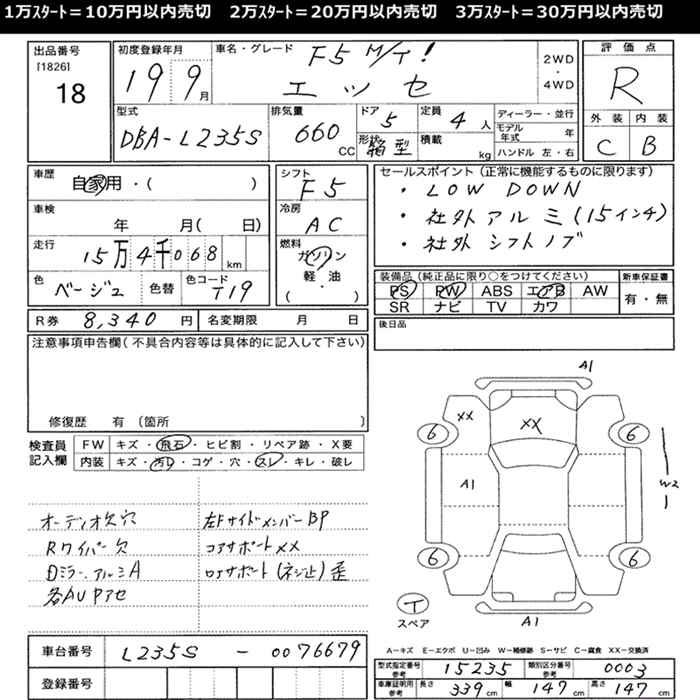 1万ｽﾀｰﾄ＝10万円以内売切　2万ｽﾀｰﾄ＝20万円以内売切　3万ｽﾀｰﾄ＝30万円以内売切
出品番号
[1826]
18
初度登録年月
19 9月
車名・グレード
F5 M/T!
エッセ
2WD
・
4WD
評価点
R
外装 内装
C B
型式
DBA-L235S
排気量
660 CC
ドア
5
形状
箱型
定員
4人
積載
kg
ディーラー・並行
モデル年式 年
ハンドル 左・右
車歴
自家用・( )
車検
年 月( 日)
走行
15万4千068 km
色
ベージュ
色替
色コード
T19
シフト
F5
冷房
AC
燃料
ガソリン
軽・油
・( )
セールスポイント（正常に機能するものに限ります）
・LOW DOWN
・社外アルミ(15インチ)
・社外シフトノブ
装備品（純正品に限り○をつけてください）
PS PW ABS エアB AW
SR ナビ TV カワ
新車保証書
有・無
R券 8,340 円
名変期限 月 日
後日品
注意事項申告欄(不具合内容等は具体的に記入して下さい)
修復歴 有(箇所 )
検査員
記入欄
FW キズ・飛石・ヒビ割・リペア跡・X要
内装 キズ・汚れ・コゲ・穴・スレ・キレ・破レ
オーディオ欠穴
Rワイパー欠
Dミラー.アルミA
各AUPアセ
左FサイドメンバーBP
コアサポートXX
ロアサポート(ネジ止)歪
A1
XX
XX
6
6
A1
W2
6
6
T
スペア
A1
A－キズ E－エクボ U－凹み W－補修跡 S－サビ C－腐食 XX－交換済
車台番号 L235S - 0076679
登録番号
型式指定番号
参考
15235
類別区分番号
参考
0003
車庫証明用
参考
長さ 339 cm
幅 147 cm
高さ 147 cm